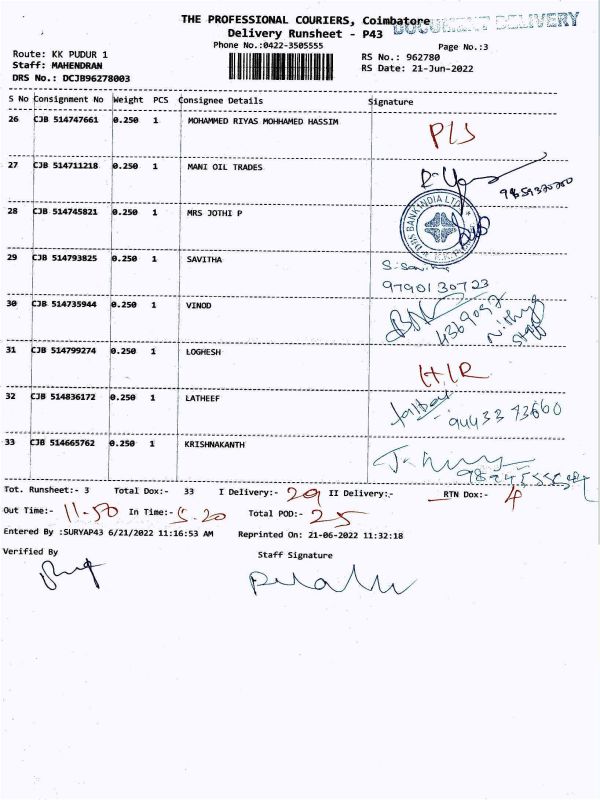 THE PROFESSIONAL COURIERS, Coimbatore
DOCUMENT DELIVERY
Delivery Runsheet - P43
Phone No.:0422-3505555
Page No.:3
Route: KK PUDUR 1
Staff: MAHENDRAN
DRS No.: DCJB96278003
RS No.: 962780
RS Date: 21-Jun-2022
S No Consignment No Weight PCS Consignee Details Signature
26 CJB 514747661 0.250 1 MOHAMMED RIYAS MOHHAMED HASSIM
27 CJB 514711218 0.250 1 MANI OIL TRADES
28 CJB 514745821 0.250 1 MRS JOTHI P
DBS BANK INDIA LTD
29 CJB 514793825 0.250 1 SAVITHA
9790130723
30 CJB 514735944 0.250 1 VINOD
4369097 Nithya Staff
31 CJB 514799274 0.250 1 LOGHESH
32 CJB 514836172 0.250 1 LATHEEF
33 CJB 514665762 0.250 1 KRISHNAKANTH
Tot. Runsheet:- 3 Total Dox:- 33 I Delivery:- 29 II Delivery:- RTN Dox:- 4
Out Time:- 11.50 In Time:- 5.20 Total POD:- 25
Entered By :SURYAP43 6/21/2022 11:16:53 AM Reprinted On: 21-06-2022 11:32:18
Verified By
Staff Signature